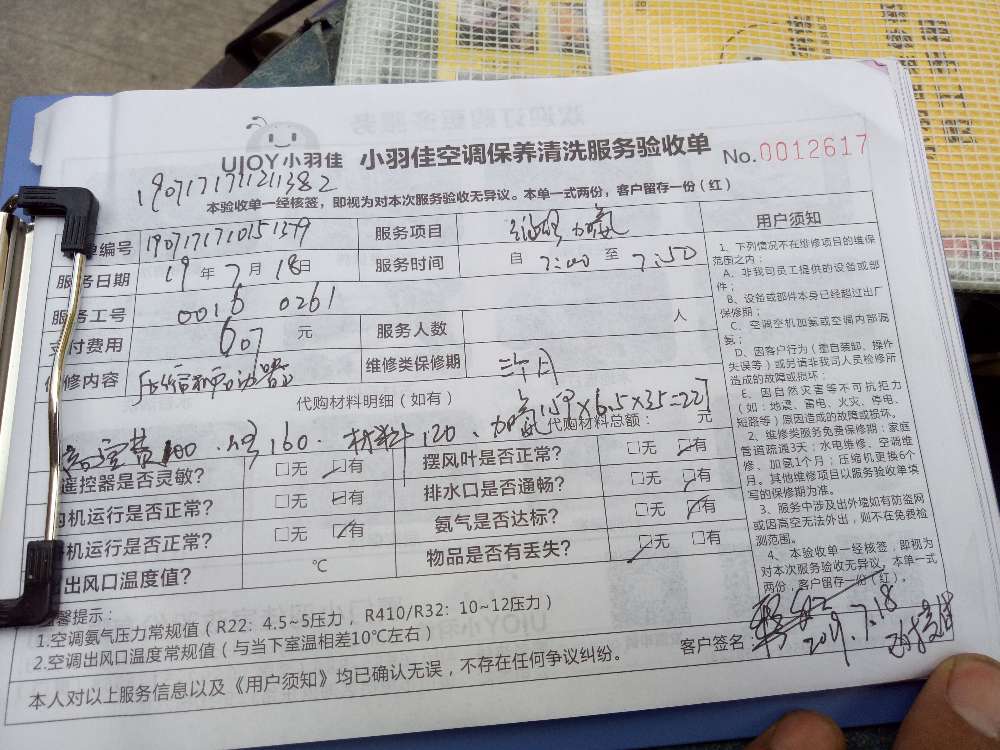 UJOY小羽佳 小羽佳空调保养清洗服务验收单 No.0012617
1907171711211382
本验收单一经核签，即视为对本次服务验收无异议。本单一式两份，客户留存一份（红）
单编号 1907171710151379 服务项目 加氟
服务日期 19年7月18日 服务时间 自 7:00 至 7:50
服务工号 0016 0261
支付费用 607 元 服务人数 人
修内容 维修类保修期 三个月
代购材料明细（如有）
高空费100. 160. 材料120. 加氟1.59×6.5×35=227
代购材料总额： 元
遥控器是否灵敏? □无 ☑有 摆风叶是否正常? □无 ☑有
内机运行是否正常? □无 ☑有 排水口是否通畅? □无 ☑有
机运行是否正常? □无 ☑有 氨气是否达标? □无 ☑有
出风口温度值? ℃ 物品是否有丢失? ☑无 □有
馨提示：
1.空调氨气压力常规值（R22: 4.5~5压力，R410/R32: 10~12压力）
2.空调出风口温度常规值（与当下室温相差10℃左右）
本人对以上服务信息以及《用户须知》均已确认无误，不存在任何争议纠纷。
客户签名： 2019.7.18
用户须知
1、下列情况不在维修项目的维保
范围之内：
A、非我司员工提供的设备或部
件；
B、设备或部件本身已经超过出厂
保修期；
C、空调空机加氨或空调内部漏
氨；
D、因客户行为（擅自装卸、操作
失误等）或另请非我司人员检修所
造成的故障或损坏；
E、因自然灾害等不可抗拒力
（如：地震、雷电、火灾、停电、
短路等）原因造成的故障或损坏。
2、维修类服务免费保修期：家庭
管道疏通3天；水电维修、空调维
修、加氨1个月；压缩机更换6个
月。其他维修项目以服务验收单填
写的保修期为准。
3、服务中涉及出外墙如有防盗网
或因高空无法外出，则不在免费检
测范围。
4、本验收单一经核签，即视为
对本次服务验收无异议，本单一式
两份，客户留存一份（红）。